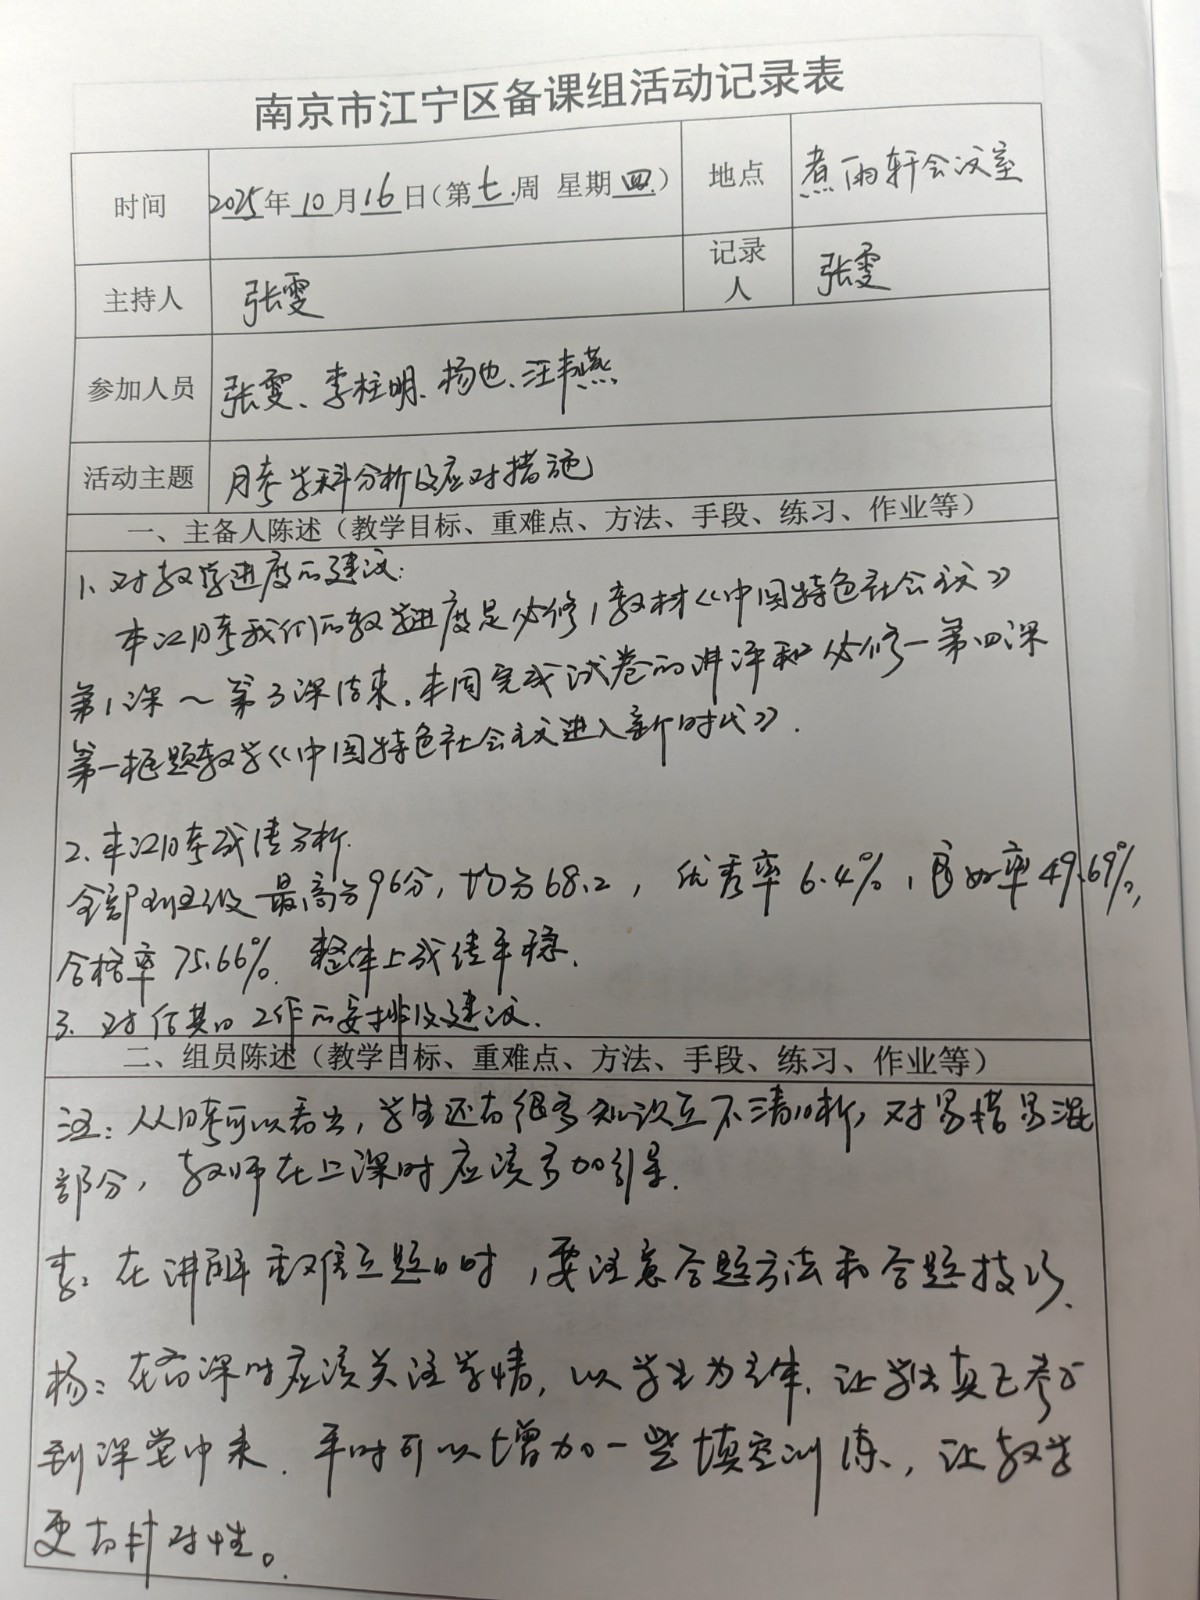 南京市江宁区备课组活动记录表
时间 2025年10月16日(第七周 星期四) 地点 煮雨轩会议室
主持人 张雯 记录人 张雯
参加人员 张雯、李柱明、杨也、汪丰燕
活动主题 月考学科分析及应对措施
一、主备人陈述（教学目标、重难点、方法、手段、练习、作业等）
1、对教学进度的建议：
本次月考我们的教学进度是必修1教材《中国特色社会主义》
第1课～第3课结束，本周完成试卷的讲评和必修一第四课
第一框题教学《中国特色社会主义进入新时代》.
2、本次月考成绩分析.
全部班级最高分96分，均分68.2，优秀率6.4%，良好率49.69%，
合格率75.66%. 整体上成绩平稳.
3、对后期的工作的安排及建议.
二、组员陈述（教学目标、重难点、方法、手段、练习、作业等）
汪：从月考可以看出，学生还有很多知识点不清晰，对易错易混
部分，教师在上课时应该多加引导.
李：在讲解主观题目时，要注意答题方法和答题技巧.
杨：在备课时应该关注学情，以学生为主体，让学生真正参与
到课堂中来. 平时可以增加一些填空训练，让教学
更有针对性。